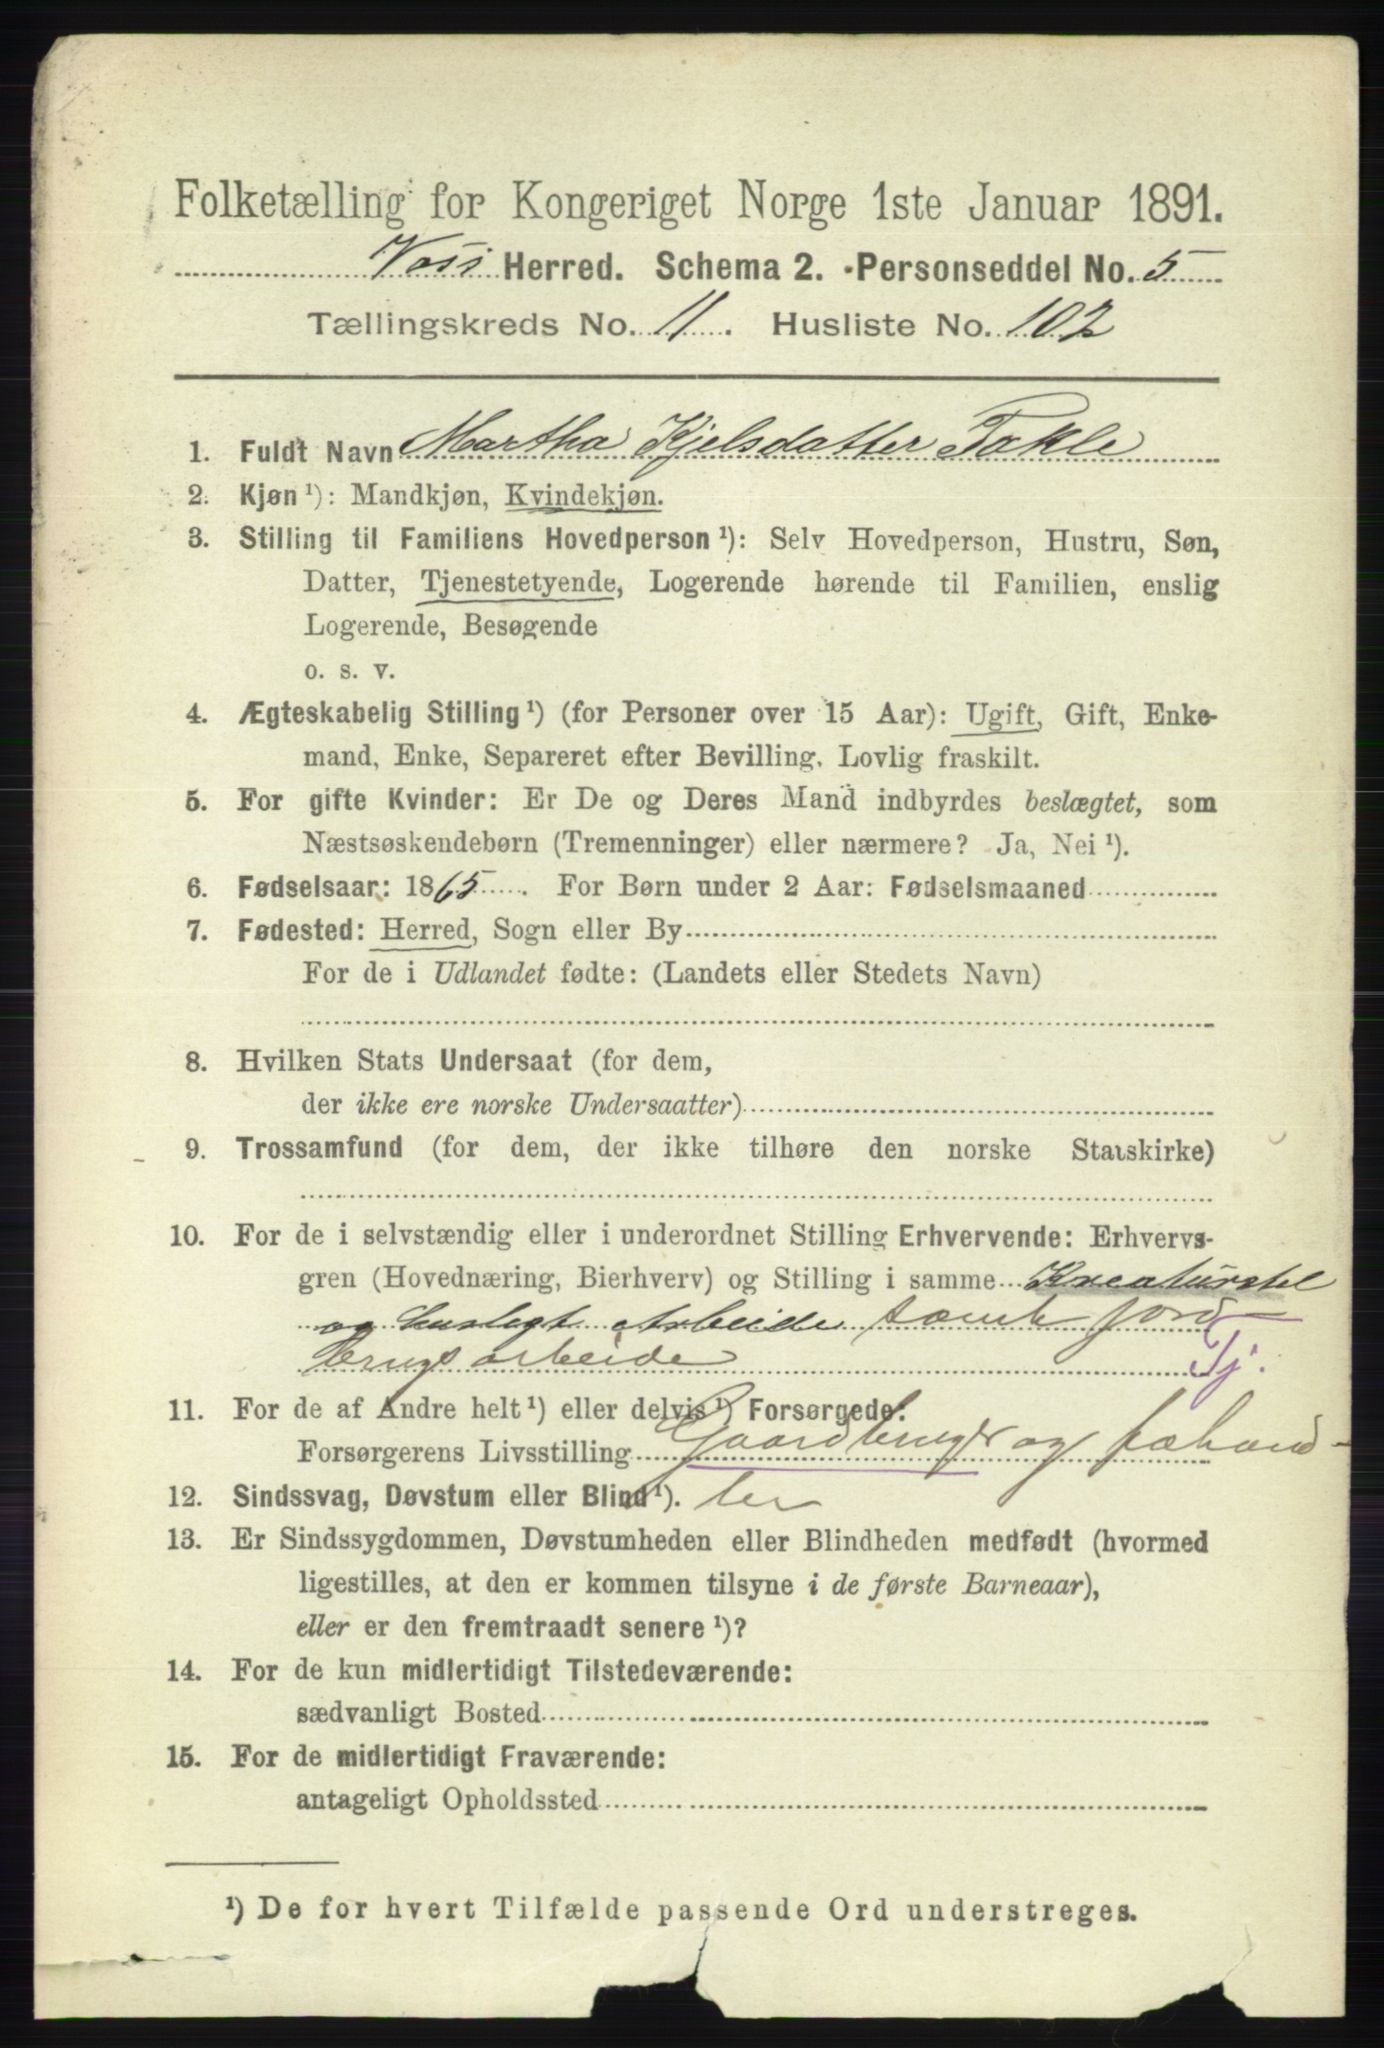 Folketælling for Kongeriget Norge 1ste Januar 1891.
Voss Herred. Schema 2. Personseddel No. 5
Tællingskreds No. 11. Husliste No. 102
1. Fuldt Navn Martha Kjelsdatter Takle
2. Kjøn ¹): Mandkjøn, Kvindekjøn.
3. Stilling til Familiens Hovedperson ¹): Selv Hovedperson, Hustru, Søn,
Datter, Tjenestetyende, Logerende hørende til Familien, enslig
Logerende, Besøgende
o. s. v.
4. Ægteskabelig Stilling ¹) (for Personer over 15 Aar): Ugift, Gift, Enke-
mand, Enke, Separeret efter Bevilling. Lovlig fraskilt.
5. For gifte Kvinder: Er De og Deres Mand indbyrdes beslægtet, som
Næstsøskendebørn (Tremenninger) eller nærmere? Ja, Nei ¹).
6. Fødselsaar: 1865. For Børn under 2 Aar: Fødselsmaaned
7. Fødested: Herred, Sogn eller By
For de i Udlandet fødte: (Landets eller Stedets Navn)
8. Hvilken Stats Undersaat (for dem,
der ikke ere norske Undersaatter)
9. Trossamfund (for dem, der ikke tilhøre den norske Statskirke)
10. For de i selvstændig eller i underordnet Stilling Erhvervende: Erhvervs-
gren (Hovednæring, Bierhverv) og Stilling i samme Kreaturstel
og husligt Arbeide samt jord-
brugsarbeide Tj.
11. For de af Andre helt ¹) eller delvis ¹) Forsørgede:
Forsørgerens Livsstilling Gaardbruger og fæhand-
12. Sindssvag, Døvstum eller Blind ¹). ler
13. Er Sindssygdommen, Døvstumheden eller Blindheden medfødt (hvormed
ligestilles, at den er kommen tilsyne i de første Barneaar),
eller er den fremtraadt senere ¹)?
14. For de kun midlertidigt Tilstedeværende:
sædvanligt Bosted
15. For de midlertidigt Fraværende:
antageligt Opholdssted
¹) De for hvert Tilfælde passende Ord understreges.